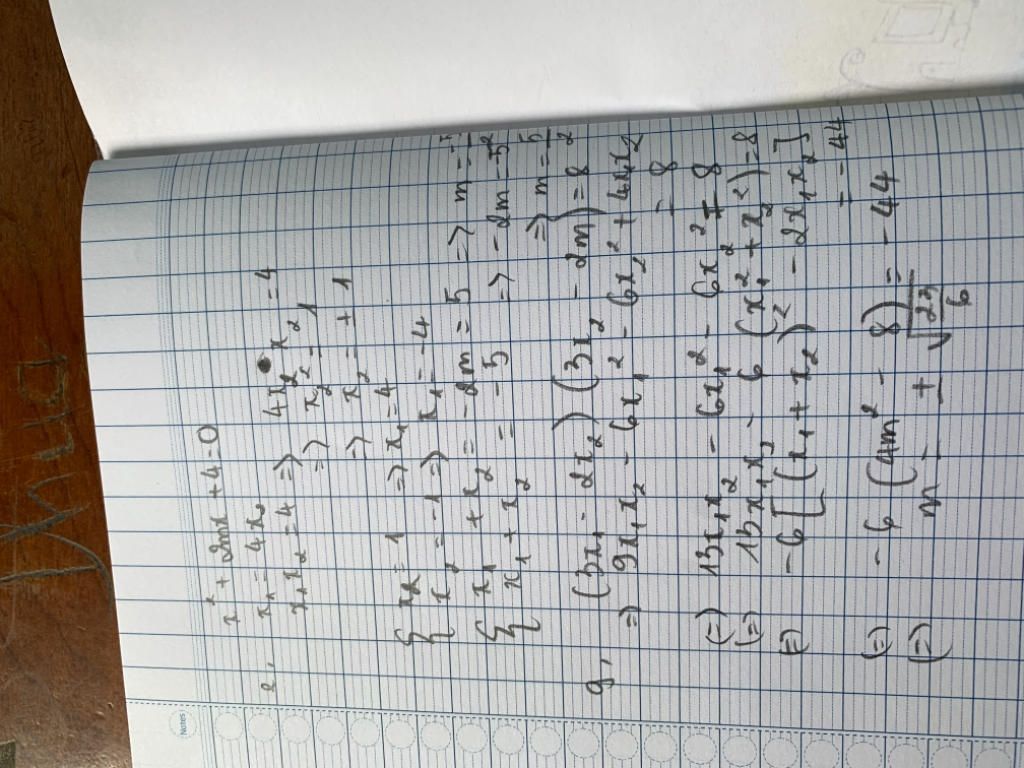 Notes
x² + 2mx + 4 = 0
e, x₁ = 4x₂
x₁x₂ = 4 => 4x₂x₂ = 4
=> x₂² = 1
=> x₂ = ± 1
{ x₂ = 1 => x₁ = 4
x₂ = -1 => x₁ = -4
{ x₁ + x₂ = -2m = 5 => m = -5
x₁ + x₂ = -5 => -2m = -5
=> m = 5/2
g, (3x₁ - 2x₂) (3x₂ - 2m) = 8
=> 9x₁x₂ - 6x₁² - 6x₂² + 4x₁x₂
= 8
(=) 13x₁x₂ - 6x₁² - 6x₂² = 8
(=) 13x₁x₂ - 6 (x₁² + x₂²) = 8
(=) -6 [(x₁ + x₂)² - 2x₁x₂]
= -44
(=) -6 (4m² - 8) = -44
(=) m = ± √23/6